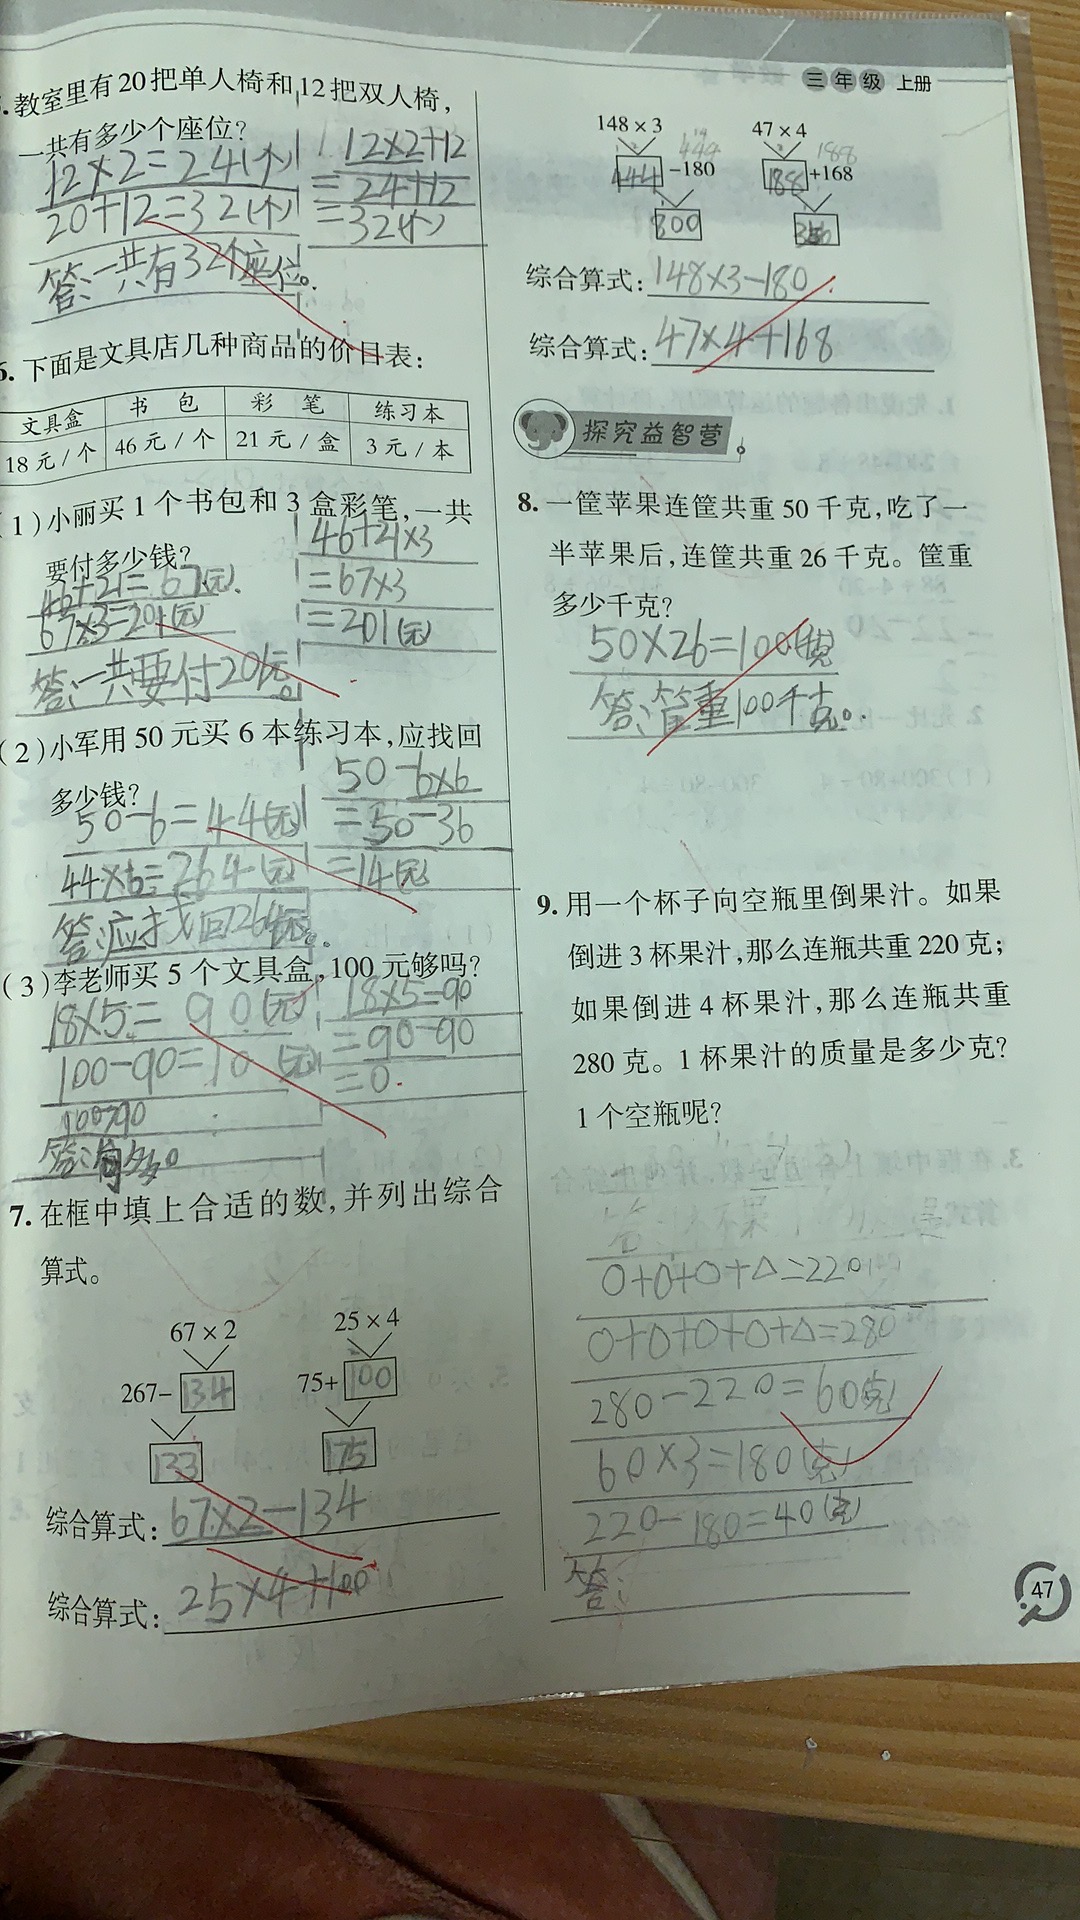 三年级 上册
.教室里有20把单人椅和12把双人椅，
一共有多少个座位？
12×2=24(个)
20+12=32(个)
答:一共有32个座位。
12×2+12
=24+12
=32(个)
6. 下面是文具店几种商品的价目表：
文具盒 书包 彩笔 练习本
18元/个 46元/个 21元/盒 3元/本
(1)小丽买1个书包和3盒彩笔,一共
要付多少钱？
46+21=67(元).
67×3=201(元)
答:一共要付201元。
46+21×3
=67×3
=201(元)
(2)小军用50元买6本练习本,应找回
多少钱？
50-6=44(元)
44×6=264(元)
答:应找回264元。
50-6×6
=50-36
=14(元)
(3)李老师买5个文具盒,100元够吗？
18×5=90(元)
100-90=10(元)
100>90
答:够。
18×5=90
=90-90
=0.
7. 在框中填上合适的数,并列出综合
算式。
67×2
267- 134
133
25×4
75+ 100
175
综合算式: 67×2-134
综合算式: 25×4+100
148×3
444
444 -180
47×4
188
188 +168
356
综合算式: 148×3-180
综合算式: 47×4+168
探究益智营
8. 一筐苹果连筐共重50千克,吃了一
半苹果后,连筐共重26千克。筐重
多少千克？
50×26=100(千克)
答:筐重100千克。
9. 用一个杯子向空瓶里倒果汁。如果
倒进3杯果汁,那么连瓶共重220克;
如果倒进4杯果汁,那么连瓶共重
280克。1杯果汁的质量是多少克？
1个空瓶呢？
0+0+0+△=220
0+0+0+0+△=280
280-220=60(克)
60×3=180(克)
220-180=40(克)
答:
47